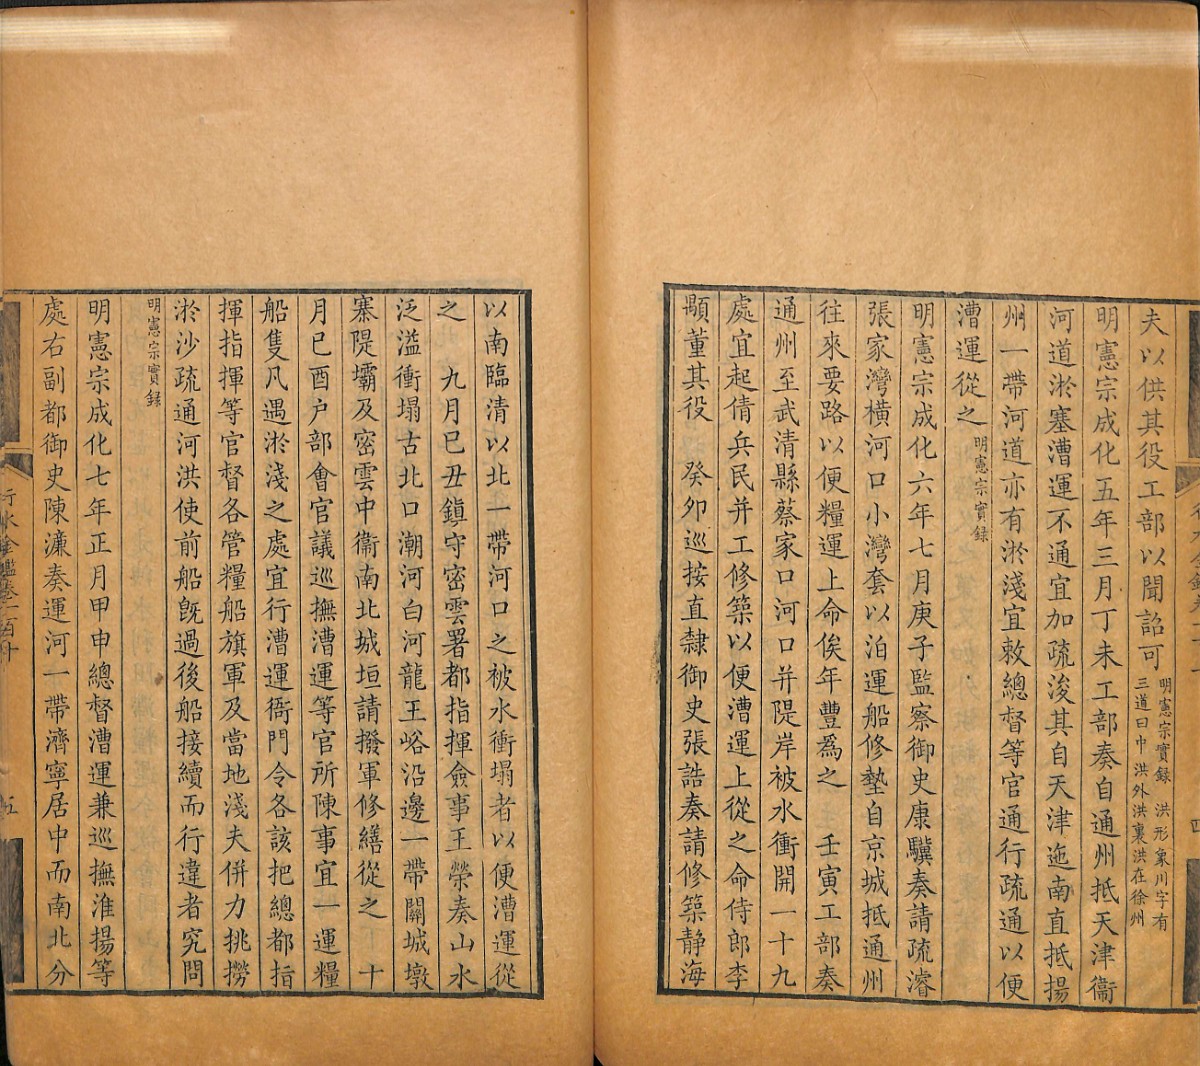 夫以供其役工部以聞詔可
明憲宗實録　洪形象川字有
三道曰中洪外洪裏洪在徐州
明憲宗成化五年三月丁未工部奏自通州抵天津衞
河道淤塞漕運不通宜加疏浚其自天津迤南直抵揚
州一帶河道亦有淤淺宜敕總督等官通行疏通以便
漕運從之
明憲宗實録
明憲宗成化六年七月庚子監察御史康驥奏請疏濬
張家灣横河口小灣套以泊運船修墊自京城抵通州
往來要路以便糧運上命俟年豐爲之　壬寅工部奏
通州至武清縣蔡家口河口并隄岸被水衝開一十九
處宜起倩兵民并工修築以便漕運上從之命侍郎李
顒董其役　癸卯巡按直隸御史張誥奏請修築静海
以南臨清以北一帶河口之被水衝塌者以便漕運從
之　九月己丑鎮守密雲署都指揮僉事王榮奏山水
泛溢衝塌古北口潮河白河龍王峪沿邊一帶關城墩
寨隄壩及密雲中衞南北城垣請撥軍修繕從之　十
月己酉户部會官議巡撫漕運等官所陳事宜一運糧
船隻凡遇淤淺之處宜行漕運衙門令各該把總都指
揮指揮等官督各管糧船旗軍及當地淺夫併力挑撈
淤沙疏通河洪使前船旣過後船接續而行違者究問
明憲宗實録
明憲宗成化七年正月甲申總督漕運兼巡撫淮揚等
處右副都御史陳濂奏運河一帶濟寧居中而南北分
行水金鑑卷一百十
五